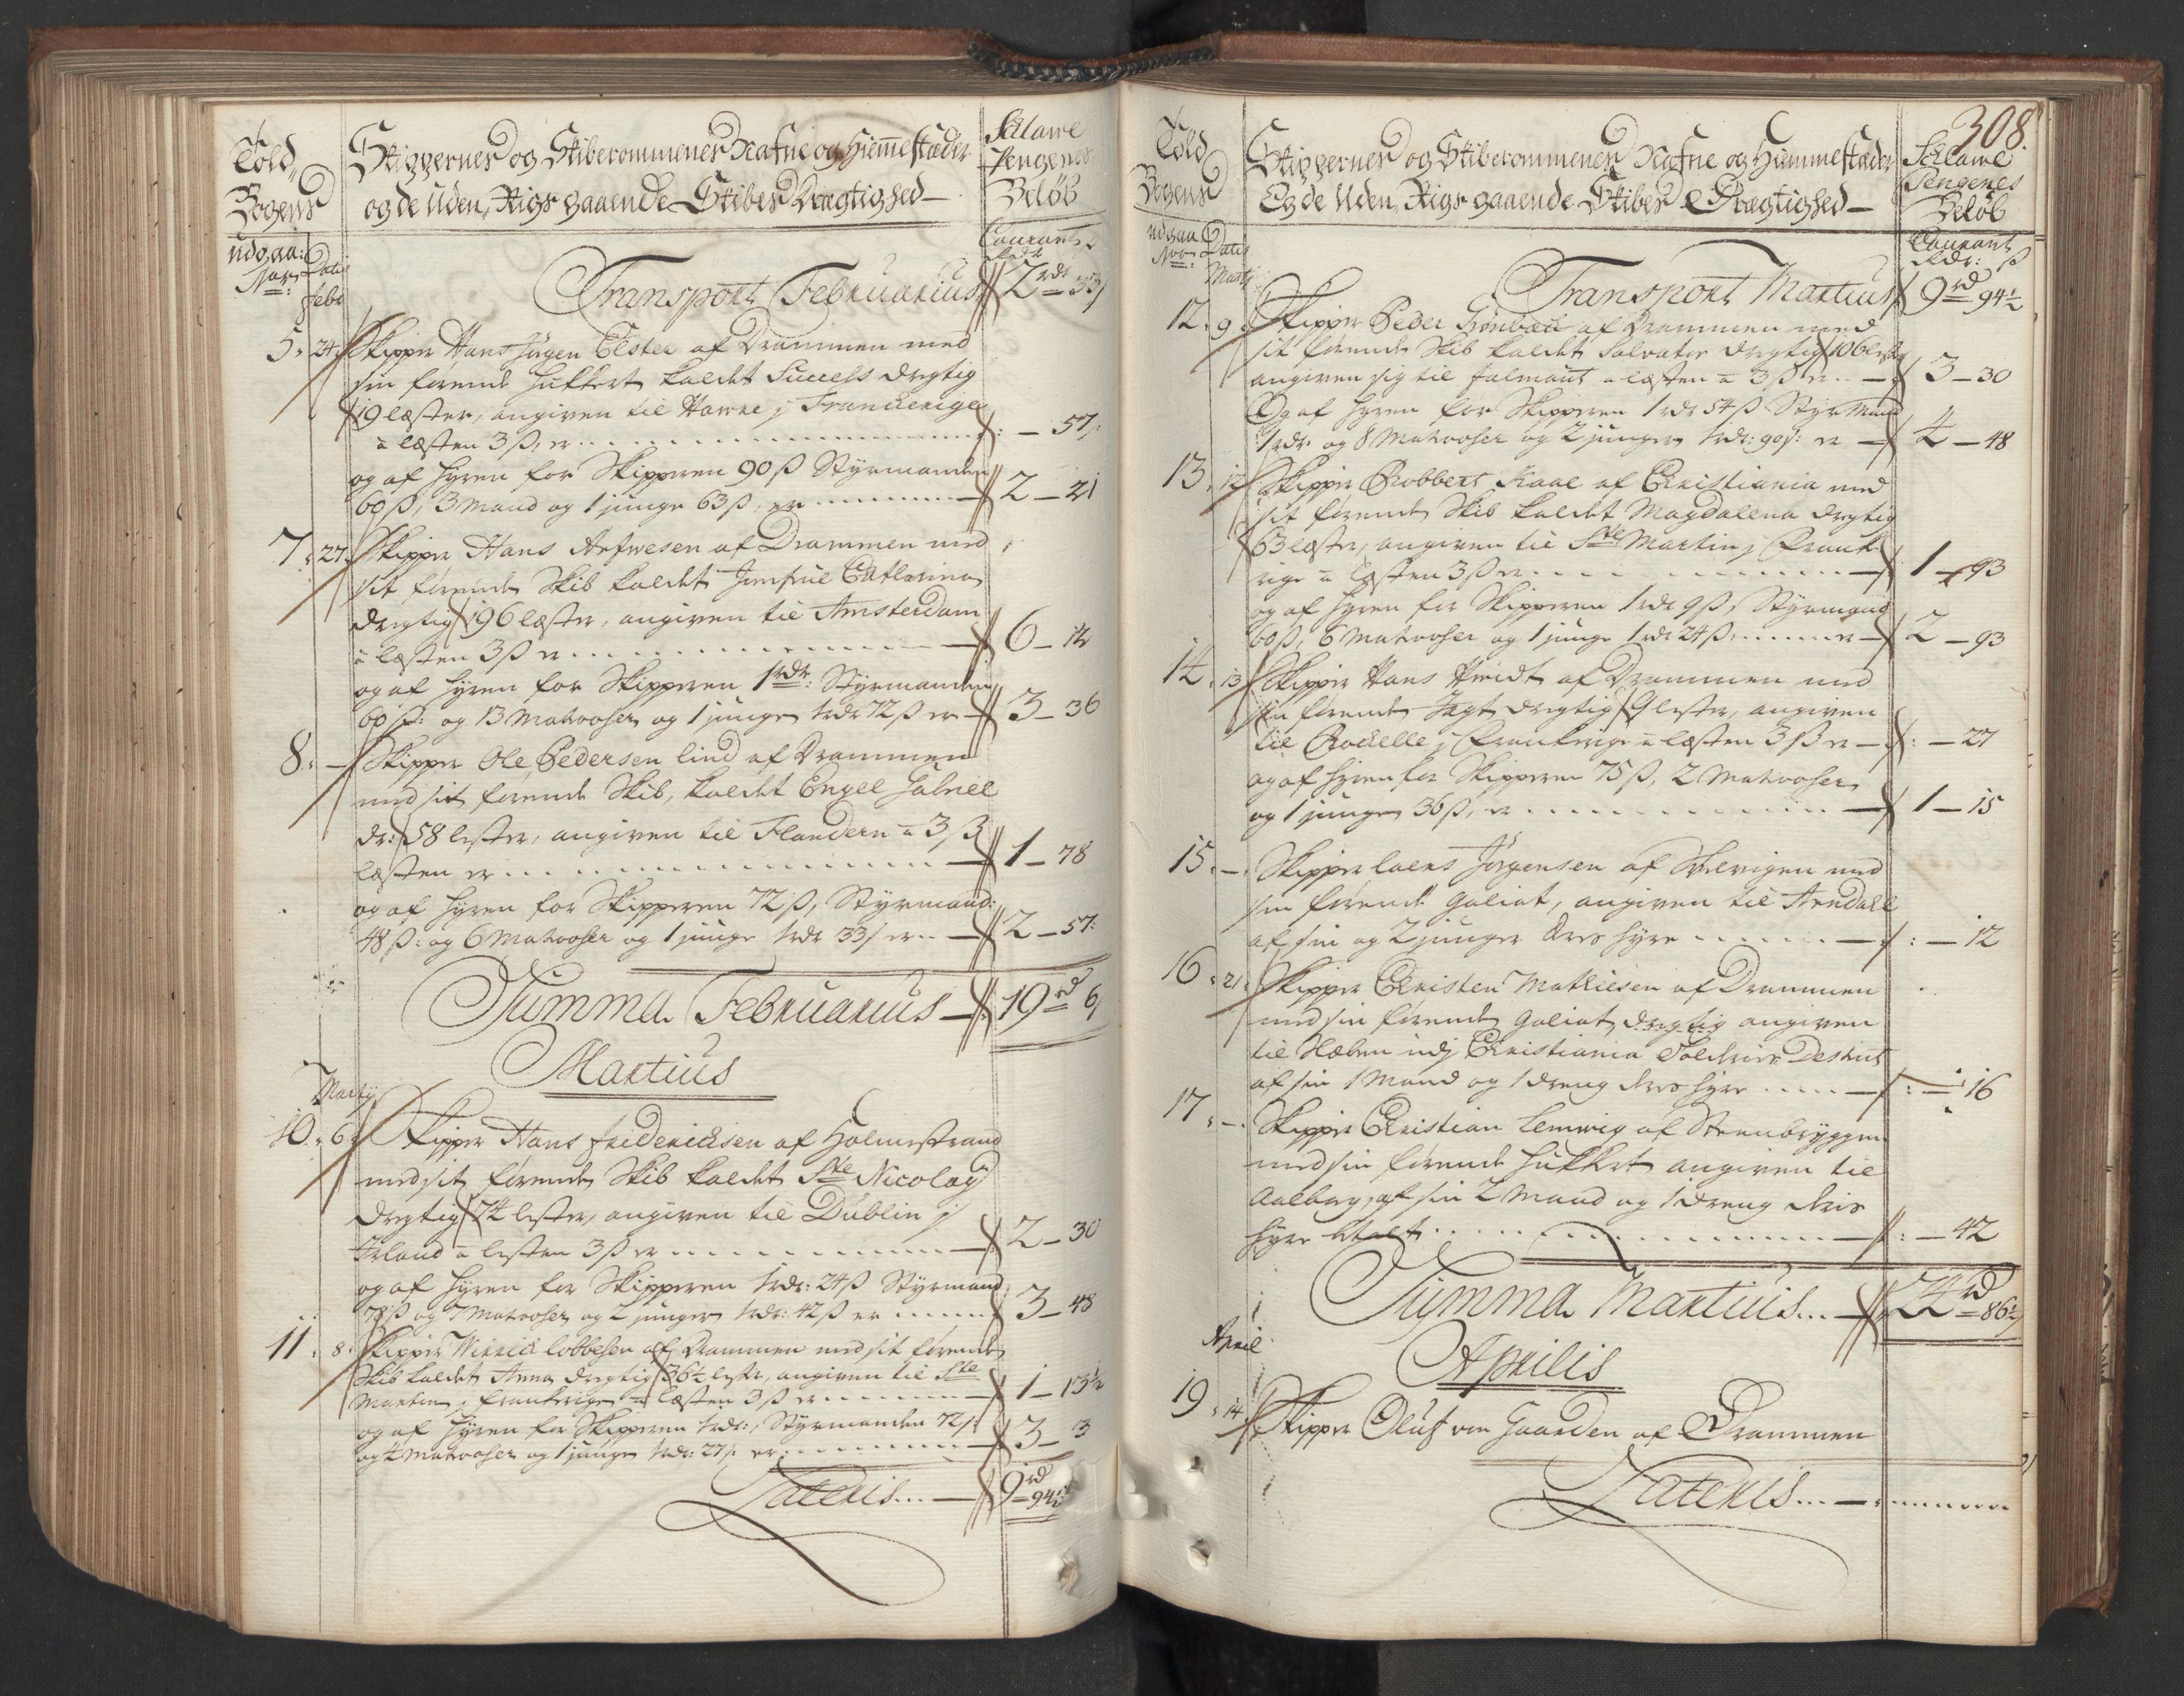 Told
Bogens
udgaa:
No: Datis
Febr
Skippernes og Skiberommenes Nafne og Hiemmestæder
og de Uden, Rigs gaaende Skibes Drægtighed
Sclave
Pengenes
Beløb
Courant
Rdr ß
Transport Februarius 2rdr 33
5. 24. Skipper Hans Jürgen Elster af Drammen med
sin førende Hukkert kaldet Success drægtig
19 læster, angiven til Havre j Franckerige
a læsten 3 ß, er - 57
og af hyren for Skipperen 90 ß Styrmanden
60 ß, 3 Mand og 1 junge 63 ß, er 2 - 21
7. 27. Skipper Hans Anfwesen af Drammen med
sit førende Skib kaldet Jomfrue Catharina
drægtig 196 læster, angiven til Amsterdam
a læsten 3 ß er 6 - 12
og af hyren for Skipperen 1 rdr: Styrmanden
60 ß: og 13 Matroser og 1 junge 1 rdr 72 ß er 3 - 36
8. - Skipper Ole Pedersen Lind af Drammen
med sit førende Skib, kaldet Engel Gabriel
dr: 58 lester, angiven til Flandern a 3 ß
læsten er 1 - 78
og af hyren for Skipperen 72 ß, Styrmand:
48 ß: og 6 Matroser og 1 junge 1 rdr 33 ß er 2 - 57:
Summa Februarius 19rd 6
Martius
Martij
10. 6. Skipper Hans Friderichsen af Holmestrand
med sit førende Skib kaldet Ste Nicolay
drægtig 74 lester, angiven til Dublin j
Irland a lesten 3 ß er 2 - 30
og af hyren for Skipperen 1 rdr: 24 ß Styrmand
78 ß og 7 Matroser og 2 junger 1 rdr: 42 ß er 3 - 48
11. 8. Skipper Hinrich Lobbesen af Drammen med sit førende
Skib kaldet Anna drægtig 36½ lester, angiven til Ste
Martin j Frankerige a læsten 3 ß er 1 - 13½
og af hyren for Skipperen 1 rdr:, Styrmanden 72 ß:
og 4 Matroser og 1 junge 1 rdr: 27 ß er 3 - 3
Lateris 9rd 94½
308.
Told
Bogens
udgaa
No: Datis
Martij
Skippernes og Skiberommenes Nafne og Hiemmestæder
Og de Uden, Rigs gaaende Skibes Drægtighed
Sclave
Pengenes
Beløb
Courant
Rdr: ß
Transport Martius 9rd 94½
12. 9. Skipper Peder Grønbech af Drammen med
sit førende Skib kaldet Salvator drægtig 106 lester
angiven sig til Falmout a læsten a 3 ß er 3 - 30
Og af hyren for Skipperen 1 rdr 54 ß Styrmand
1 rdr. og 8 Matroser og 2 junger 1 rdr: 90 ß: er 4 - 48
13. 12 Skipper Robbert Kaae af Christiania med
sit førende Skib kaldet Magdalena drægtig
63 læster, angiven til Ste Martin j Frank-
rige a læsten 3 ß er 1 - 93
og af hyren for Skipperen 1 rdr 9 ß, Styrmand
60 ß, 6 Matroser og 1 junge 1 rdr 24 ß, er 2 - 93
14. 13 Skipper Hans Hvidt af Drammen med
sin førende Jagt drægtig 9 lester, angiven
til Rochelle j Frankerige a læsten 3 ß er : - 27
og af hyren for Skipperen 75 ß, 2 Matroser
og 1 junge 36 ß, er 1 - 15
15. - Skipper Laers Jørgensen af Svelvigen med
sin førende Galiot, angiven til Arndall
af sin og 2 junger dres hyre : - 12
16. 21. Skipper Christen Mathiesen af Drammen
med sin førende Galiot, drægtig angiven
til udj Christiania Districht
af sin 1 Mand og 1 dreng dres hyre : - 16
17. - Skipper Christian Lemvig af Strembryggen
med sin førende Hukkert angiven til
Aalborg, af sin 2 Mand og 1 dreng deris
hyre : - 42
Summa Martius 24rd 86½
April
Aprilis
19. 14 Skipper Oluf von Gaarden af Drammen
Lateris